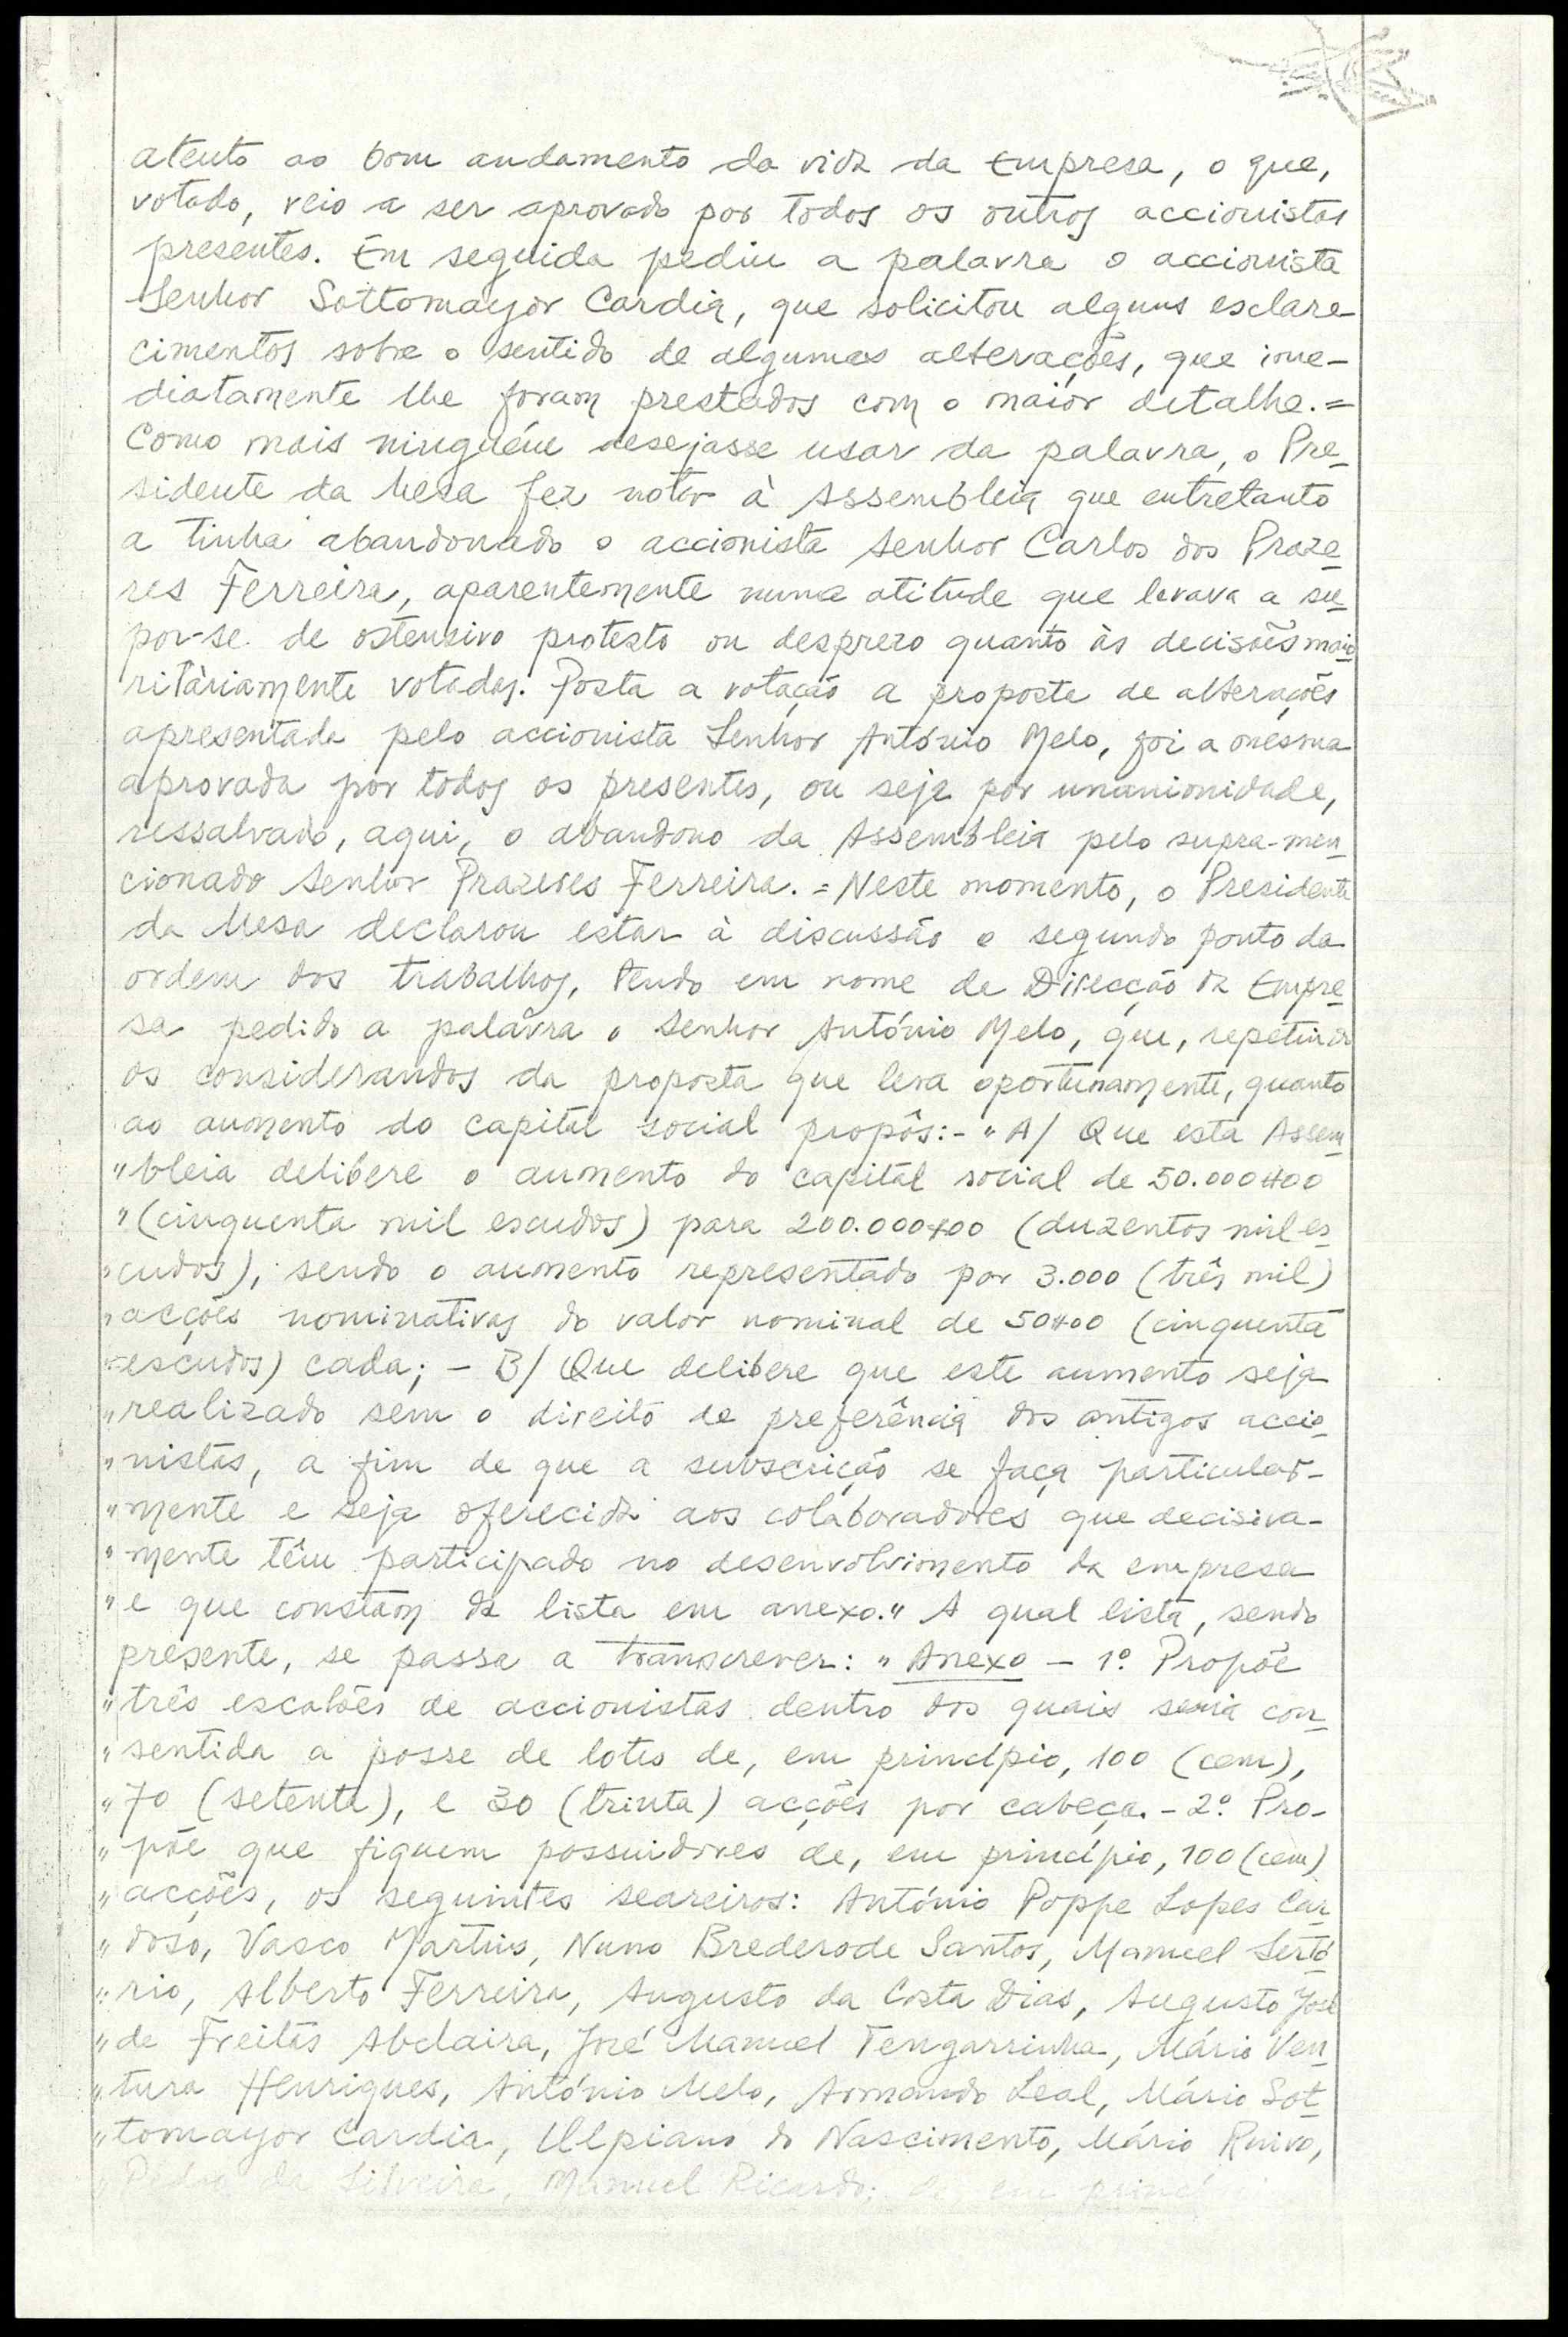 atento ao bom andamento da vida da Empresa, o que,
votado, veio a ser aprovado por todos os outros accionistas
presentes. Em seguida pediu a palavra o accionista
Senhor Sottomayor Cardia, que solicitou alguns esclare-
cimentos sobre o sentido de algumas alterações, que ime-
diatamente lhe foram prestados com o maior detalhe.=
Como mais ninguém desejasse usar da palavra, o Pre-
sidente da Mesa fez notar à Assembleia que entretanto
a tinha abandonado o accionista Senhor Carlos dos Praze-
res Ferreira, aparentemente numa atitude que levava a su-
por-se de ostensivo protesto ou desprezo quanto às decisões maio-
ritàriamente votadas. Posta a votação a proposta de alterações
apresentada pelo accionista Senhor António Melo, foi a mesma
aprovada por todos os presentes, ou seja por unanimidade,
ressalvado, aqui, o abandono da Assembleia pelo supra-men-
cionado Senhor Prazeres Ferreira.= Neste momento, o Presidente
da Mesa declarou estar à discussão o segundo ponto da
ordem dos trabalhos, tendo em nome da Direcção da Empre-
sa pedido a palavra o Senhor António Melo, que, repetindo
os considerandos da proposta que lera oportunamente, quanto
ao aumento do capital social propôs:- "A/ Que esta Assem-
"bleia delibere o aumento do capital social de 50.000$00
"(cinquenta mil escudos) para 200.000$00 (duzentos mil es-
"cudos), sendo o aumento representado por 3.000 (três mil)
"acções nominativas do valor nominal de 50$00 (cinquenta
"escudos) cada; - B/ Que delibere que este aumento seja
"realizado sem o direito de preferência dos antigos accio-
"nistas, a fim de que a subscrição se faça particular-
"mente e seja oferecida aos colaboradores que decisiva-
"mente têm participado no desenvolvimento da empresa
"e que constam da lista em anexo." A qual lista, sendo
presente, se passa a transcrever: "Anexo - 1º. Propõe
"três escalões de accionistas dentro dos quais seria con-
"sentida a posse de lotes de, em princípio, 100 (cem),
"70 (setenta), e 30 (trinta) acções por cabeça. - 2º. Pro-
"põe que fiquem possuidores de, em princípio, 100 (cem)
"acções, os seguintes seareiros: António Poppe Lopes Car-
"doso, Vasco Martins, Nuno Brederode Santos, Manuel Sertó-
"rio, Alberto Ferreira, Augusto da Costa Dias, Augusto José
"de Freitas Abelaira, José Manuel Tengarrinha, Mário Ven-
"tura Henriques, António Melo, Armando Leal, Mário Sot-
"tomayor Cardia, Ulpiano do Nascimento, Mário Ruivo,
"Pedro da Silveira, Manuel Ricardo; de, em princí